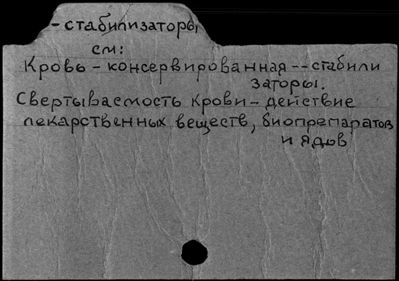 - стабилизаторы,
см:
Кровь - консервированная -- стабили
заторы.
Свертываемость крови - действие
лекарственных веществ, биопрепаратов
и ядов